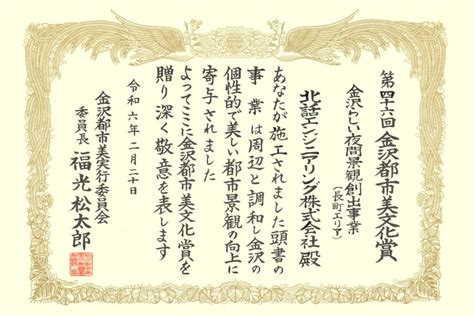 第四十六回 金沢都市美文化賞
金沢らしい夜間景観創出事業
(長町エリア)
北話エンジニアリング株式会社 殿
あなたが施工されました頭書の
事業は周辺と調和し金沢の
個性的で美しい都市景観の向上に
寄与されました
よってここに金沢都市美文化賞を
贈り深く敬意を表します
令和六年二月二十日
金沢都市美実行委員会
委員長 福光松太郎